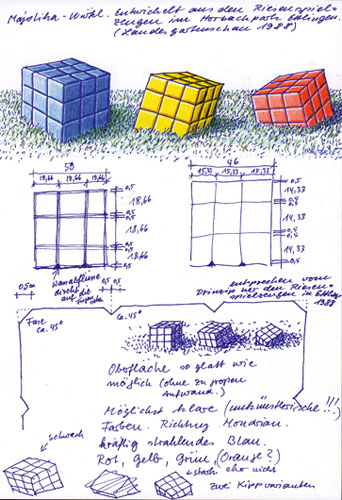 Majolika-Würfel. Entwickelt aus den Riesenspiel-
zeugen im Horbachpark Ettlingen.
(Landesgartenschau 1988)
59
19,66 19,66 19,66
0,5
18,66
0,5
0,5
18,66
0,5
0,5
18,66
0,5
46
15,33 15,33 15,33
0,5
14,33
0,4
14,33
0,4
14,33
0,5
0,5
direkt
auf die
Fuge
entsprechen vom
Prinzip her den Riesen-
spielzeugen in Ettlingen
1988
Fase
ca. 45°
Ca. 45°
Oberfläche so glatt wie
möglich (ohne zu großen
Aufwand.)
Möglichst klare (unkünstlerische!!!)
Farben. Richtung Mondrian.
kräftig strahlendes Blau.
Rot, Gelb, Grün, (Orange?)
schwach
stark eher nicht
zwei Kippvarianten